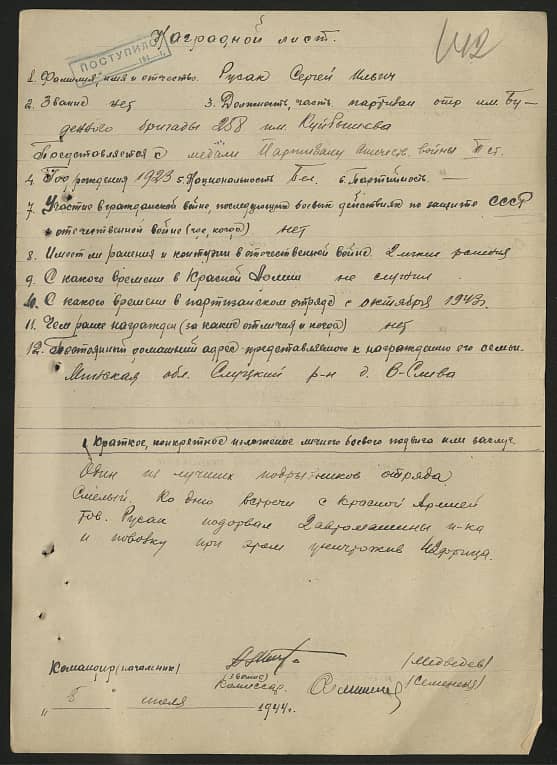 Наградной лист.
142
ПОСТУПИЛО
1. Фамилия, имя и отчество. Русак Сергей Ильич
2. Звание нет 3. Должность, часть партизан отр им. Бу-
деного бригады 258 им. Куйбышева
Представляется к медали Партизану Отечеств. войны II ст.
4. Год рождения 1923 5. Национальность Бел. 6. Партийность —
7. Участие в гражданской войне, последующих боевых действиях по защите СССР
и отечественной войне (где, когда) нет
8. Имеет ли ранения и контузии в отечественной войне 2 ранения
9. С какого времени в Красной Армии не служил
10. С какого времени в партизанском отряде с октября 1943г.
11. Чем ранее награжден (за какие отличия и когда) нет
12. Постоянный домашний адрес представляемого к награждению его семьи.
Минская обл. Слуцкий р-н д. В-Слива
Краткое, конкретное изложение личного боевого подвига или заслуг
Один из лучших подрывников отряда
Смелый. Ко дню встречи с Красной Армией
тов. Русак подорвал 2 автомашины п-ка
и повозку при этом уничтожив фрица.
Командир (начальник) (Медведев)
(звание)
Комиссар (Семеняя)
" июля 1944г.